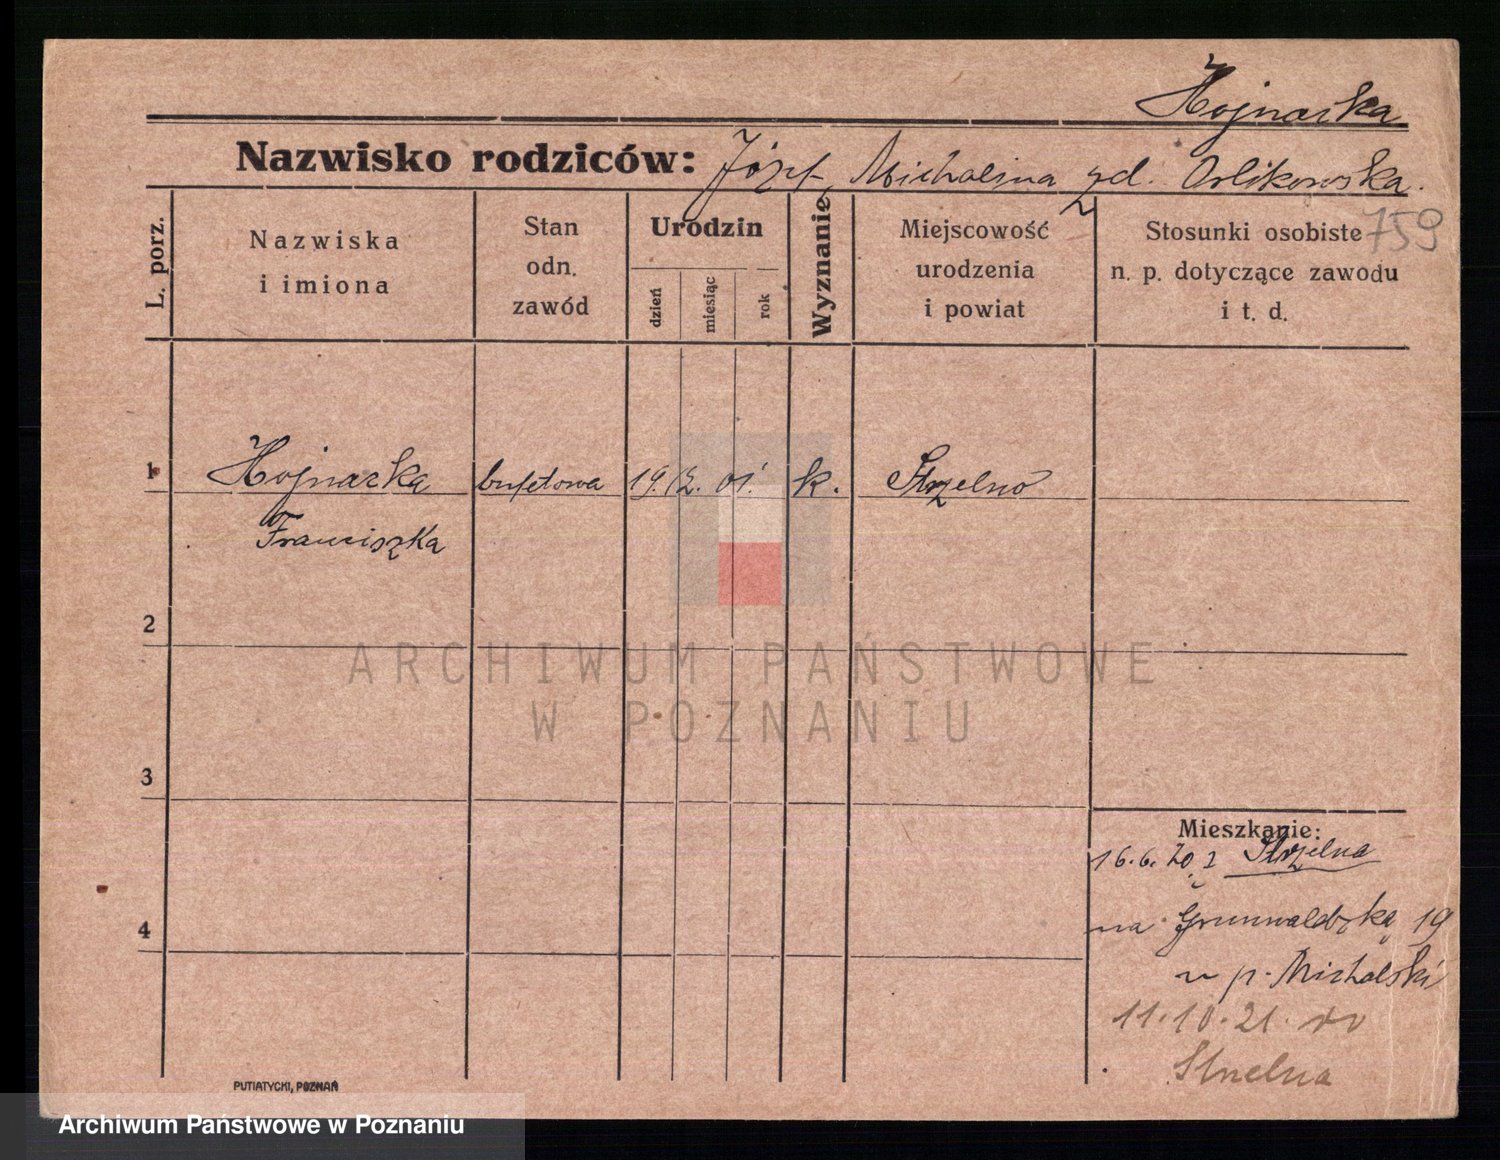 Hojnacka
Nazwisko rodziców: Józef, Michalina zd. Orlikowska.
759
L. porz.
Nazwiska
i imiona
Stan
odn.
zawód
Urodzin
dzień
miesiąc
rok
Wyznanie
Miejscowość
urodzenia
i powiat
Stosunki osobiste
n. p. dotyczące zawodu
i t. d.
1 Hojnacka bufetowa 19. 12. 01. k. Strzelno
Franciszka
2
3
4
Mieszkanie:
16.6.20 z Strzelna
na Grunwaldzką 19
u p. Michalski
11.10.21. do
Strzelna
PUTIATYCKI, POZNAŃ
ARCHIWUM PAŃSTWOWE
W POZNANIU
Archiwum Państwowe w Poznaniu